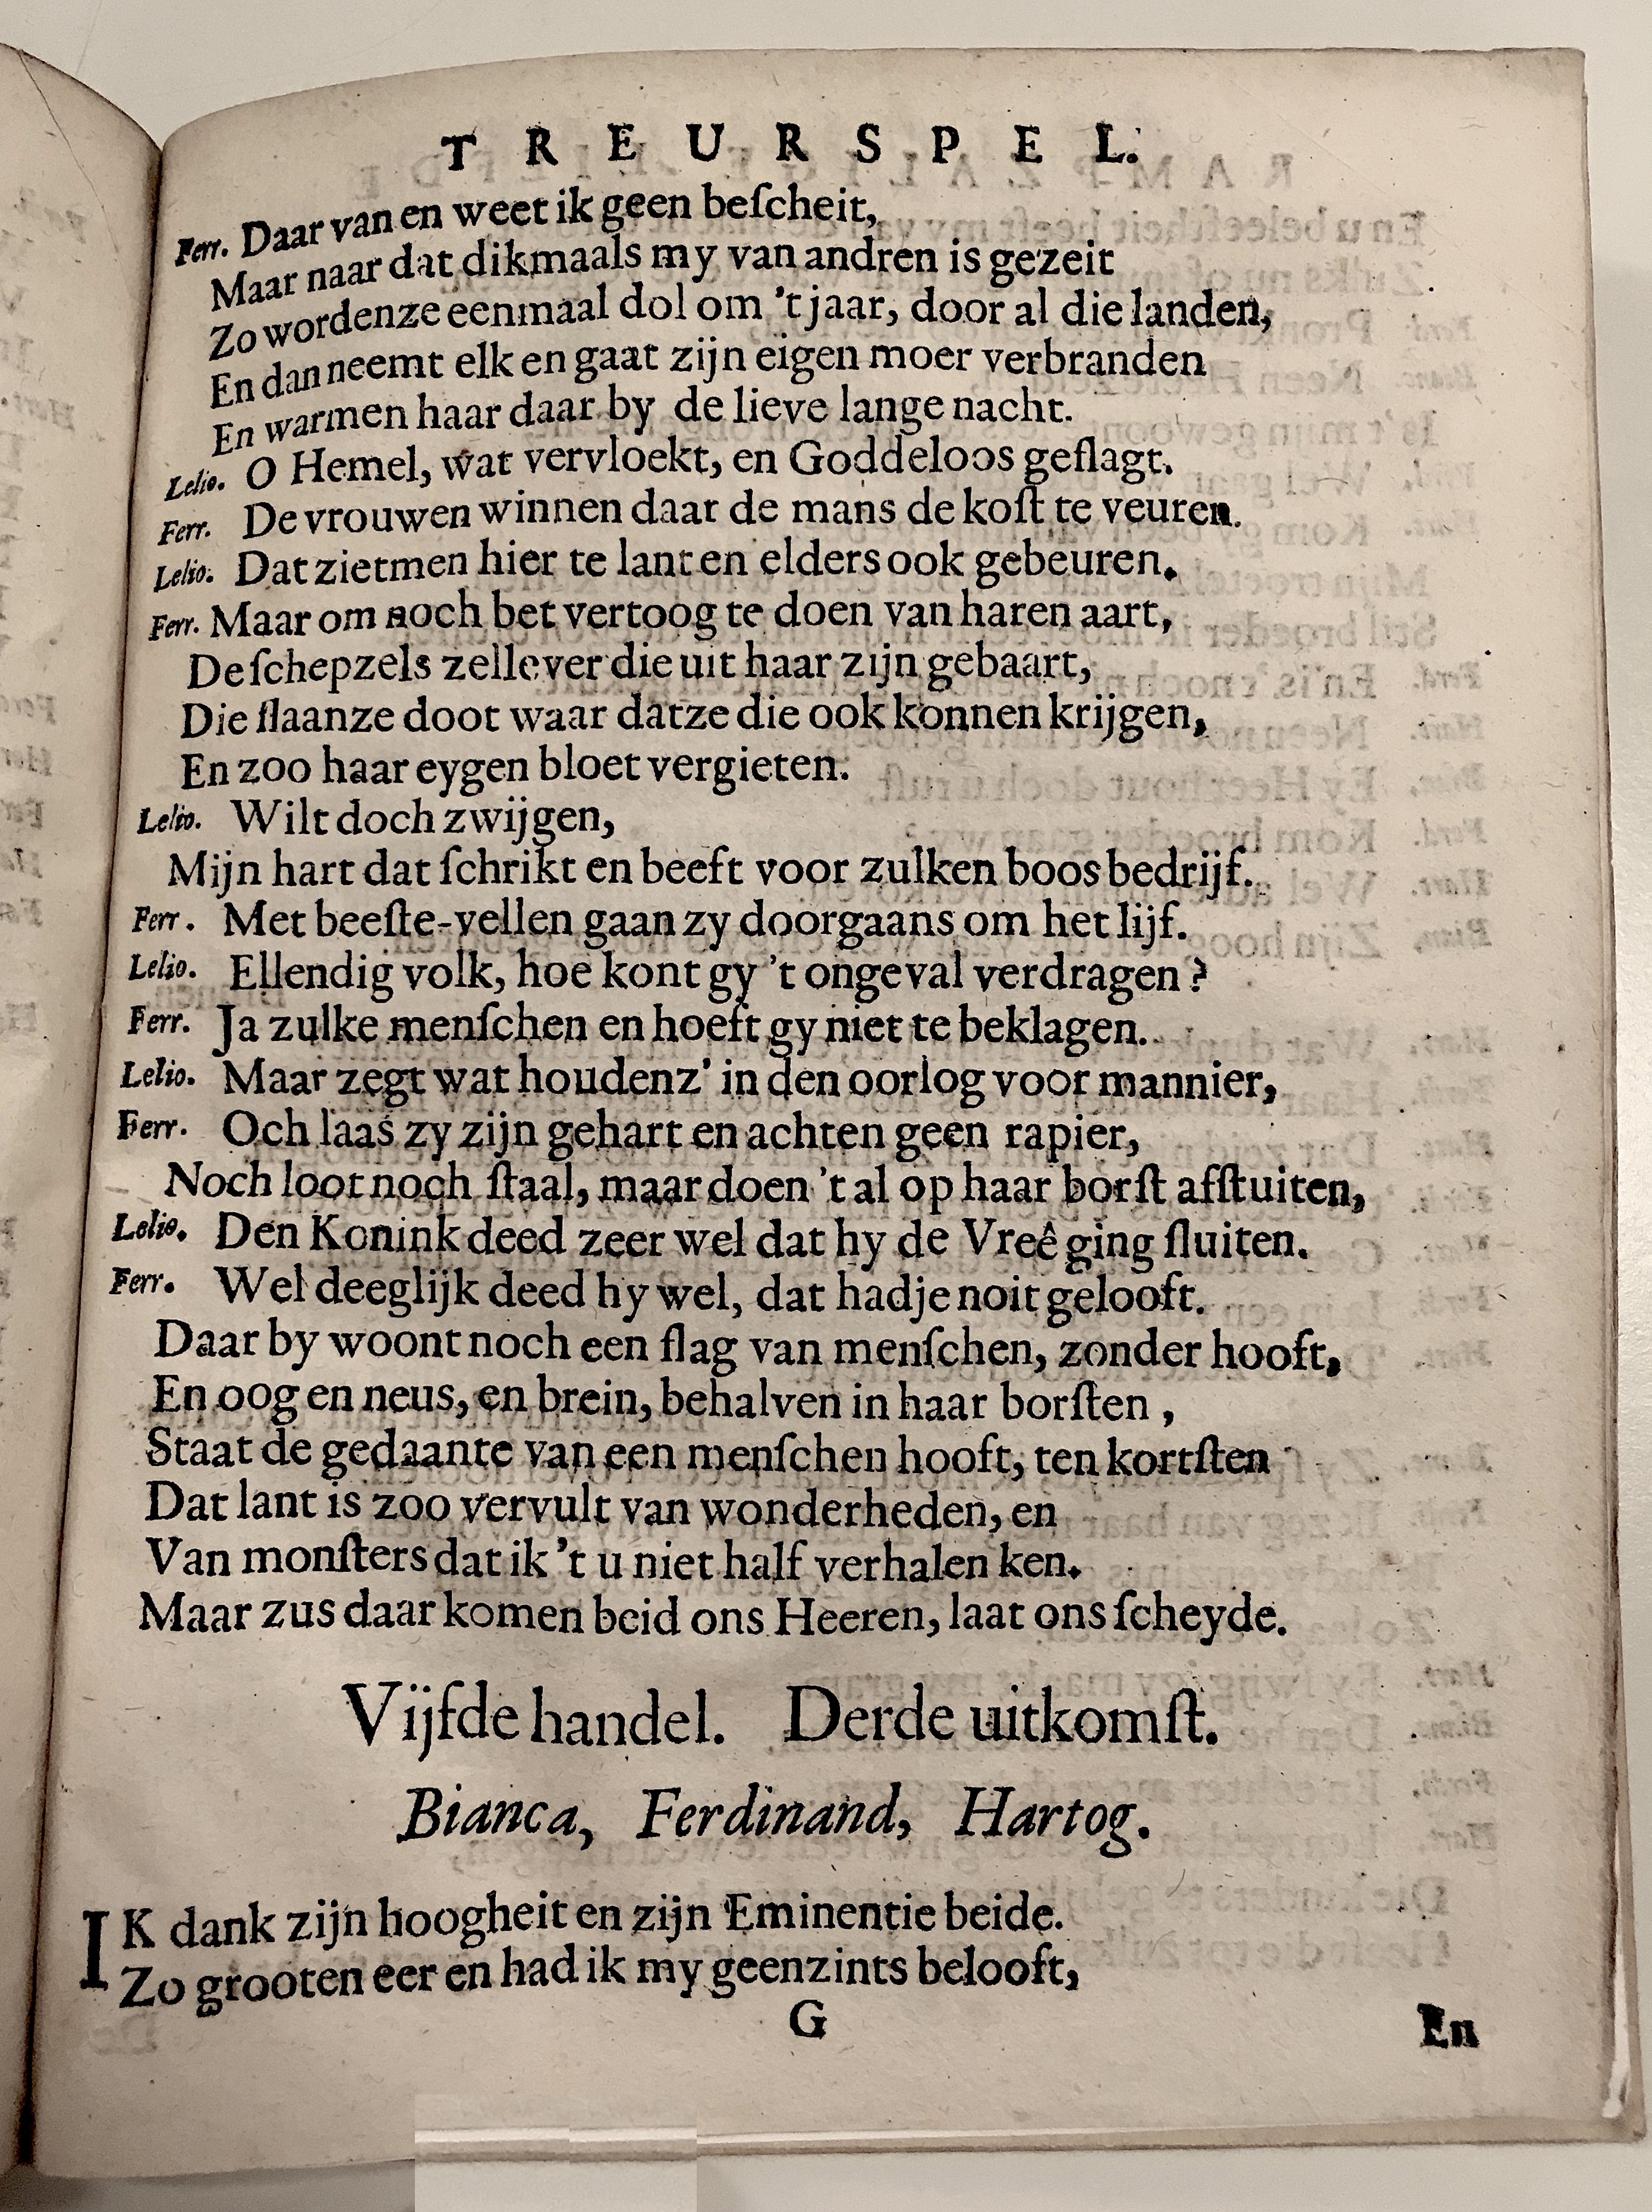 TREURSPEL.
Ferr. Daar van en weet ik geen beſcheit,
Maar naar dat dikmaals my van andren is gezeit
Zo wordenze eenmaal dol om 't jaar, door al die landen,
En dan neemt elk en gaat zijn eigen moer verbranden
En warmen haar daar by de lieve lange nacht.
Lelio. O Hemel, wat vervloekt, en Goddeloos geſlagt.
Ferr. De vrouwen winnen daar de mans de koſt te veuren.
Lelio. Dat zietmen hier te lant en elders ook gebeuren.
Ferr. Maar om noch bet vertoog te doen van haren aart,
De ſchepzels zellever die uit haar zijn gebaart,
Die ſlaanze doot waar datze die ook konnen krijgen,
En zoo haar eygen bloet vergieten.
Lelio. Wilt doch zwijgen,
Mijn hart dat ſchrikt en beeft voor zulken boos bedrijf.
Ferr. Met beeſte-vellen gaan zy doorgaans om het lijf.
Lelio. Ellendig volk, hoe kont gy 't ongeval verdragen?
Ferr. Ja zulke menſchen en hoeft gy niet te beklagen.
Lelio. Maar zegt wat houdenz' in den oorlog voor mannier,
Ferr. Och laas zy zijn gehart en achten geen rapier,
Noch loot noch ſtaal, maar doen 't al op haar borſt afſtuiten,
Lelio. Den Konink deed zeer wel dat hy de Vreê ging ſluiten.
Ferr. Wel deeglijk deed hy wel, dat hadje noit gelooft.
Daar by woont noch een ſlag van menſchen, zonder hooft,
En oog en neus, en brein, behalven in haar borſten,
Staat de gedaante van een menſchen hooft, ten kortſten
Dat lant is zoo vervult van wonderheden, en
Van monſters dat ik 't u niet half verhalen ken.
Maar zus daar komen beid ons Heeren, laat ons ſcheyde.
Vijfde handel. Derde uitkomſt.
Bianca, Ferdinand, Hartog.
IK dank zijn hoogheit en zijn Eminentie beide.
Zo grooten eer en had ik my geenzints belooft,
G
En